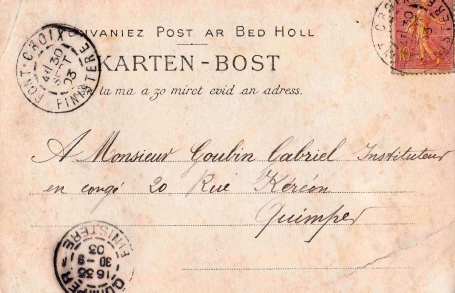 Unvaniez Post ar Bed Holl
KARTEN-BOST
tu ma a zo miret evid an adress.
PONT-CROIX
30
SEPT
03
FINISTERE
A Monsieur Goubin Gabriel Instituteur
en congé 20 Rue Kéréon
Quimper
QUIMPER
16 35
30 -9
03
FINISTERE